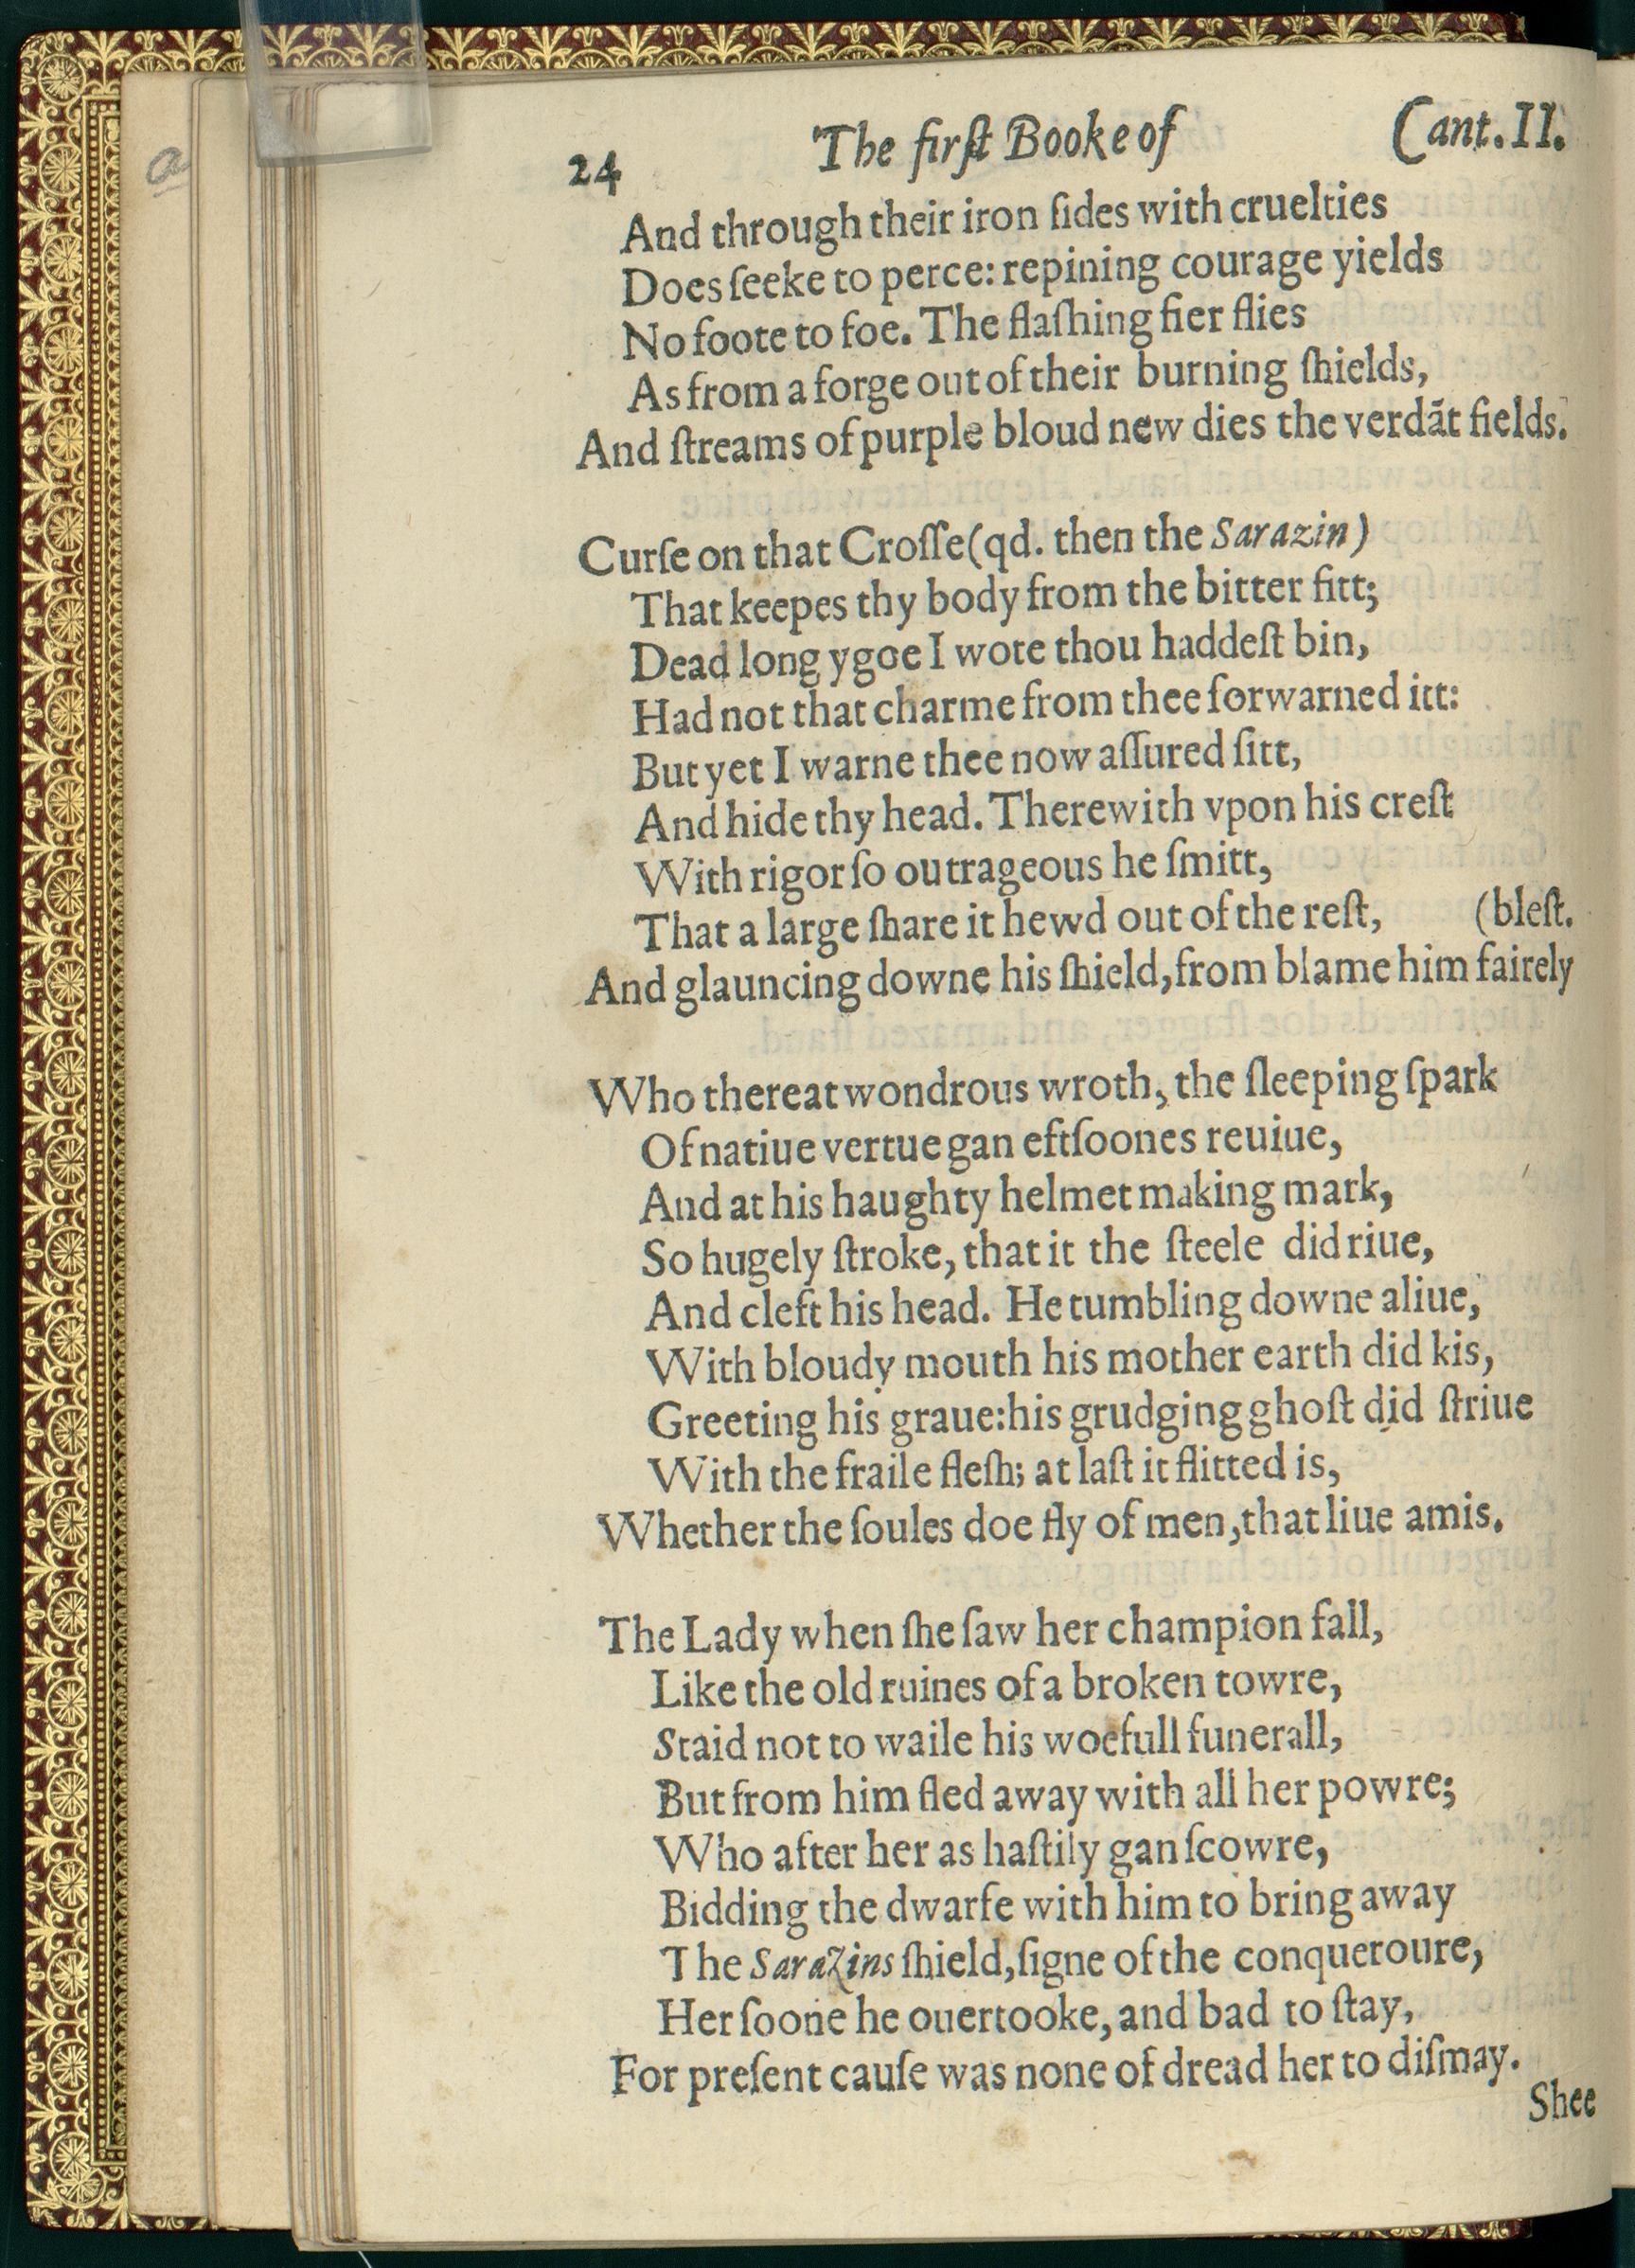 a
24 The firſt Booke of Cant. II.
And through their iron ſides with cruelties
Does ſeeke to perce: repining courage yields
No foote to foe. The flaſhing fier flies
As from a forge out of their burning ſhields,
And ſtreams of purple bloud new dies the verdãt fields.
Curſe on that Croſſe (qd. then the Sarazin)
That keepes thy body from the bitter fitt;
Dead long ygoe I wote thou haddeſt bin,
Had not that charme from thee forwarned itt:
But yet I warne thee now aſſured ſitt,
And hide thy head. Therewith vpon his creſt
With rigor ſo outrageous he ſmitt,
That a large ſhare it hewd out of the reſt, (bleſt.
And glauncing downe his ſhield, from blame him fairely
Who thereat wondrous wroth, the ſleeping ſpark
Of natiue vertue gan eftſoones reuiue,
And at his haughty helmet making mark,
So hugely ſtroke, that it the ſteele did riue,
And cleft his head. He tumbling downe aliue,
With bloudy mouth his mother earth did kis,
Greeting his graue: his grudging ghoſt did ſtriue
With the fraile fleſh; at laſt it flitted is,
Whether the ſoules doe fly of men, that liue amis.
The Lady when ſhe ſaw her champion fall,
Like the old ruines of a broken towre,
Staid not to waile his woefull funerall,
But from him fled away with all her powre;
Who after her as haſtily gan ſcowre,
Bidding the dwarfe with him to bring away
The Sarazins ſhield, ſigne of the conqueroure,
Her ſoone he ouertooke, and bad to ſtay,
For preſent cauſe was none of dread her to diſmay.
Shee